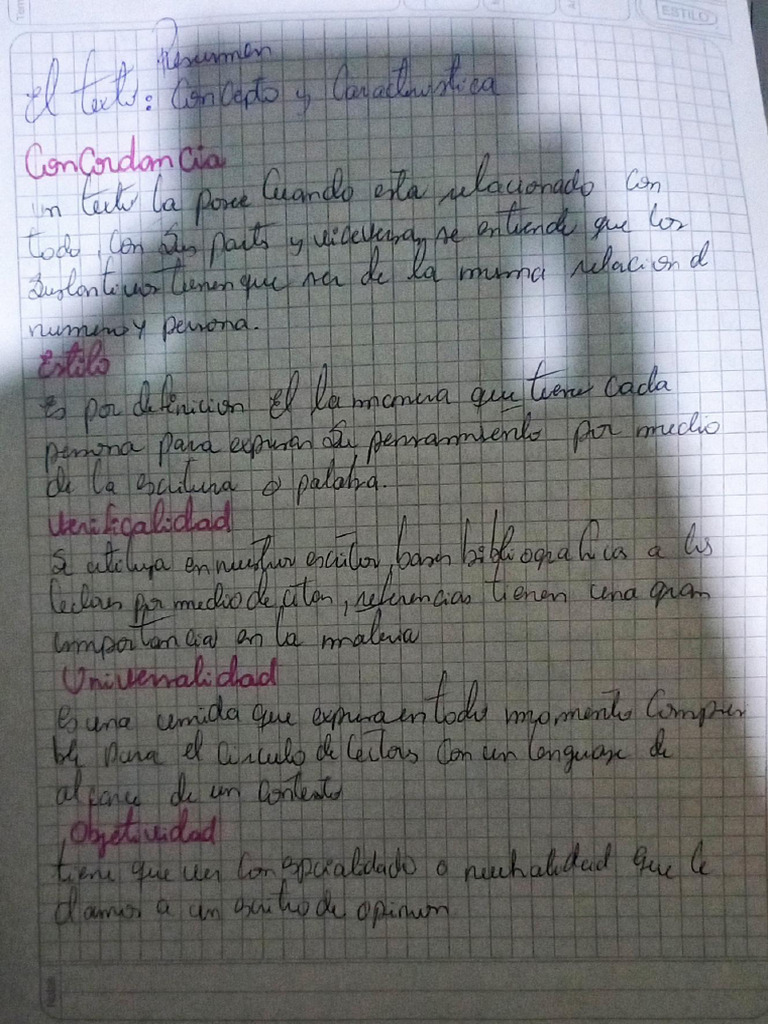 ESTILO
Resumen
El texto: Concepto y Caracteristica
Concordancia
un texto la posee Cuando esta relacionado con
todo, con sus parts y viceversa, se entiende que los
Sustantivos tienen que ser de la misma relacion d
numero y persona.
Estilo
Es por definicion El la manera que tiene cada
persona para expresar su pensamiento por medio
de la escritura o palabra.
Verificalidad
Se utiliza en nuestros escritos, bases bibliograficas a los
lectores por medio de citas, referencias tienen una gran
importancia en la materia
Universalidad
Es una que expresa en todo momento
para el circulo de lectores Con un lenguaje de
alcance de un Contexto
Objetividad
tiene que ver Con o que le
damos a un escrito de opinion